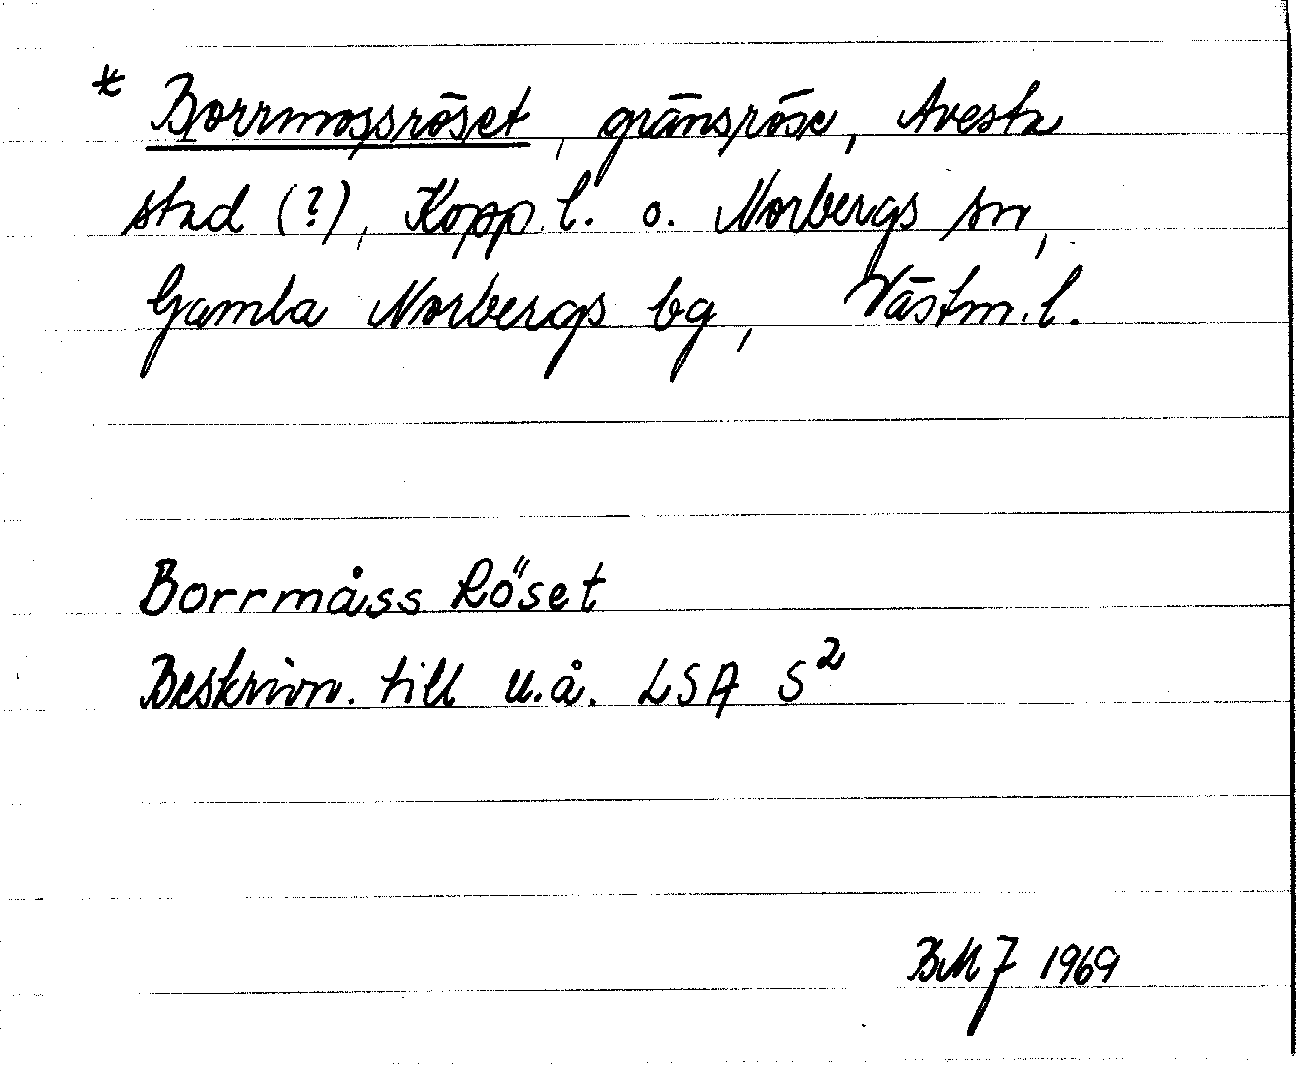 * Borrmossröset, gränsröse, Avesta
stad (?), Kopp. l. o. Norbergs sn,
Gamla Norbergs bg, Västm. l.
Borrmåss Röset
Beskrivn. till u.å. LSA S²
BMJ 1969